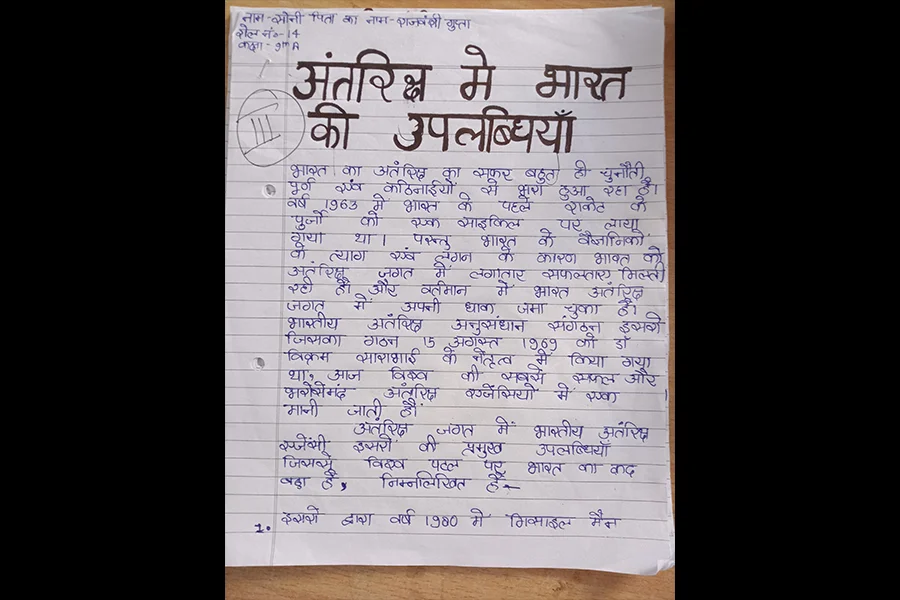 नाम-सोनी पिता का नाम-राजवंशी गुप्ता
रोल नं०-14
कक्षा-9th A
अंतरिक्ष मे भारत
III
की उपलब्धियाँ
भारत का अतंरिक्ष का सफर बहुत ही चुनौती
पूर्ण एवं कठिनाईयो से भरा हुआ रहा है।
वर्ष 1963 मे भारत के पहले राकेट के
पुर्जो को एक साइकिल पर लाया
गया था। परन्तु भारत के वैज्ञानिको
के त्याग एवं लगन के कारण भारत को
अंतरिक्ष जगत में लगातार सफलताए मिलती
रही है। और वर्तमान में भारत अतंरिक्ष
जगत में अपनी धाक जमा चुका है।
भारतीय अतंरिक्ष अनुसंधान संगठन इसरो
जिसका गठन 15 अगस्त 1969 को डॉ
विक्रम साराभाई के नेतृत्व में किया गया
था, आज विश्व की सबसे सफल और
भरोसेमंद अंतरिक्ष एजेंसियो में एक
मानी जाती है।
अंतरिक्ष जगत में भारतीय अतंरिक्ष
एजेंसी इसरो की प्रमुख उपलब्धियाँ
जिससे विश्व पटल पर भारत का कद
बढ़ा है, निम्नलिखित है-
1. इसरो द्वारा वर्ष 1980 मे मिसाइल मैन